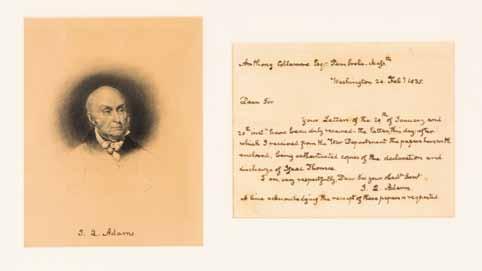 J. Q. Adams
Anthony Collamore Esqr Pembroke. Massts
Washington 24 Feby 1835.
Dear Sir
Your Letters of the 29th of January and
20th inst have been duly received. the latter this day; after
which I received from the War Department the papers herewith
enclosed, being authenticated copies of the declaration and
discharge of Isaac Thomas.
I am very respectfully Dear Sir your obedt Servt
J. Q. Adams
A line acknowledging the receipt of these papers is requested